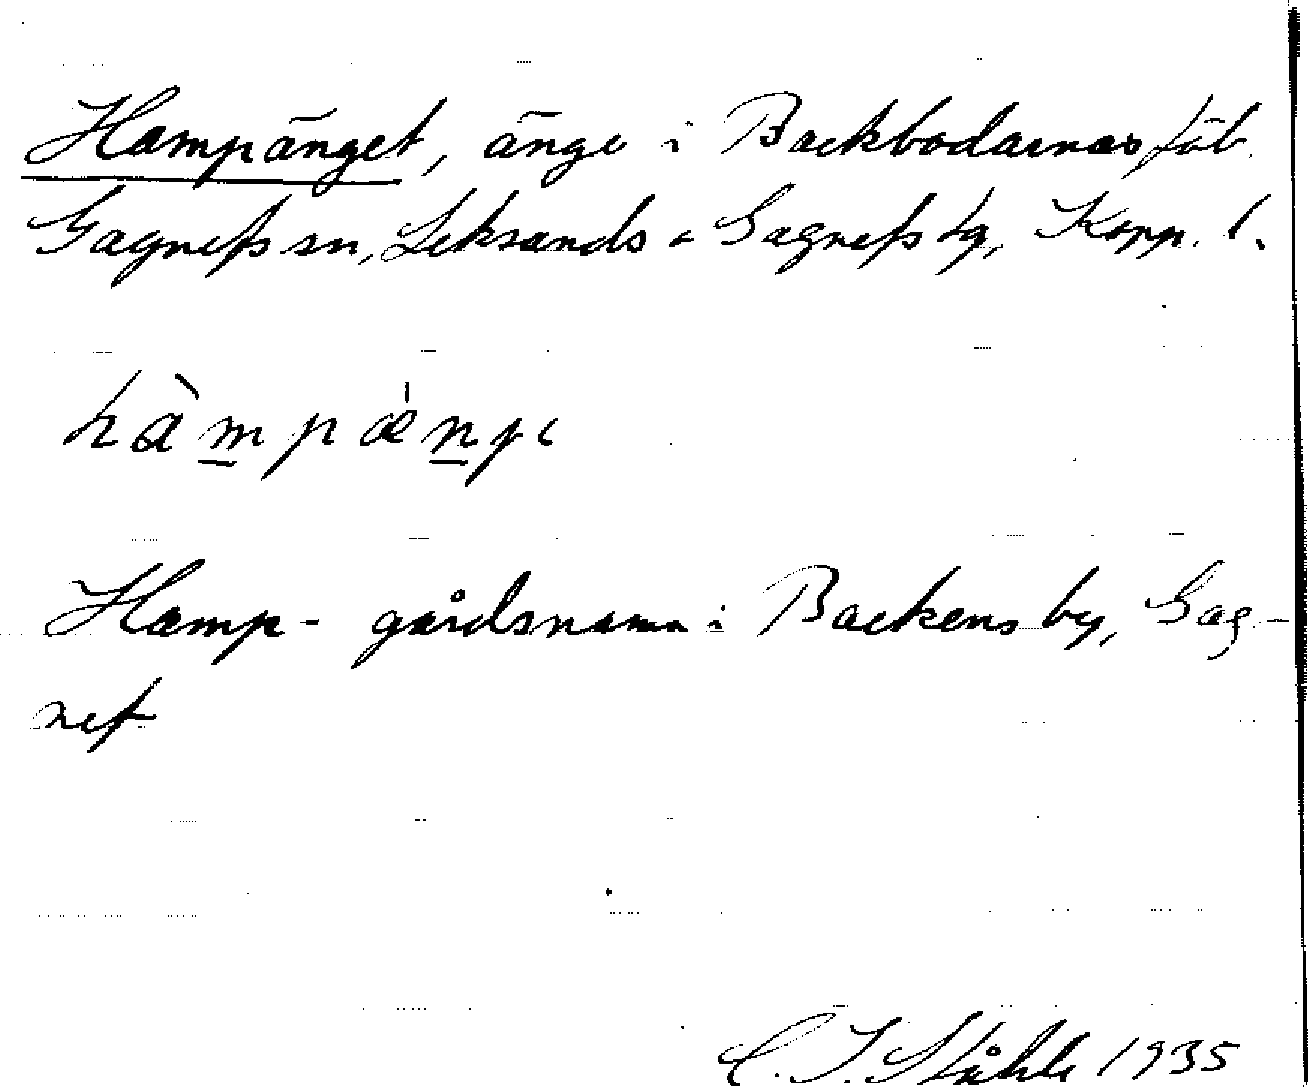 Hampänget, änge i Backbodarnas fäb.
Gagnefs sn, Leksands o Gagnefs tg, Kopp. l.
hàmpǽnʒɩ
Hamp- gårdsnamn i Backens by, Gag-
nef
C. I. Ståhle 1935